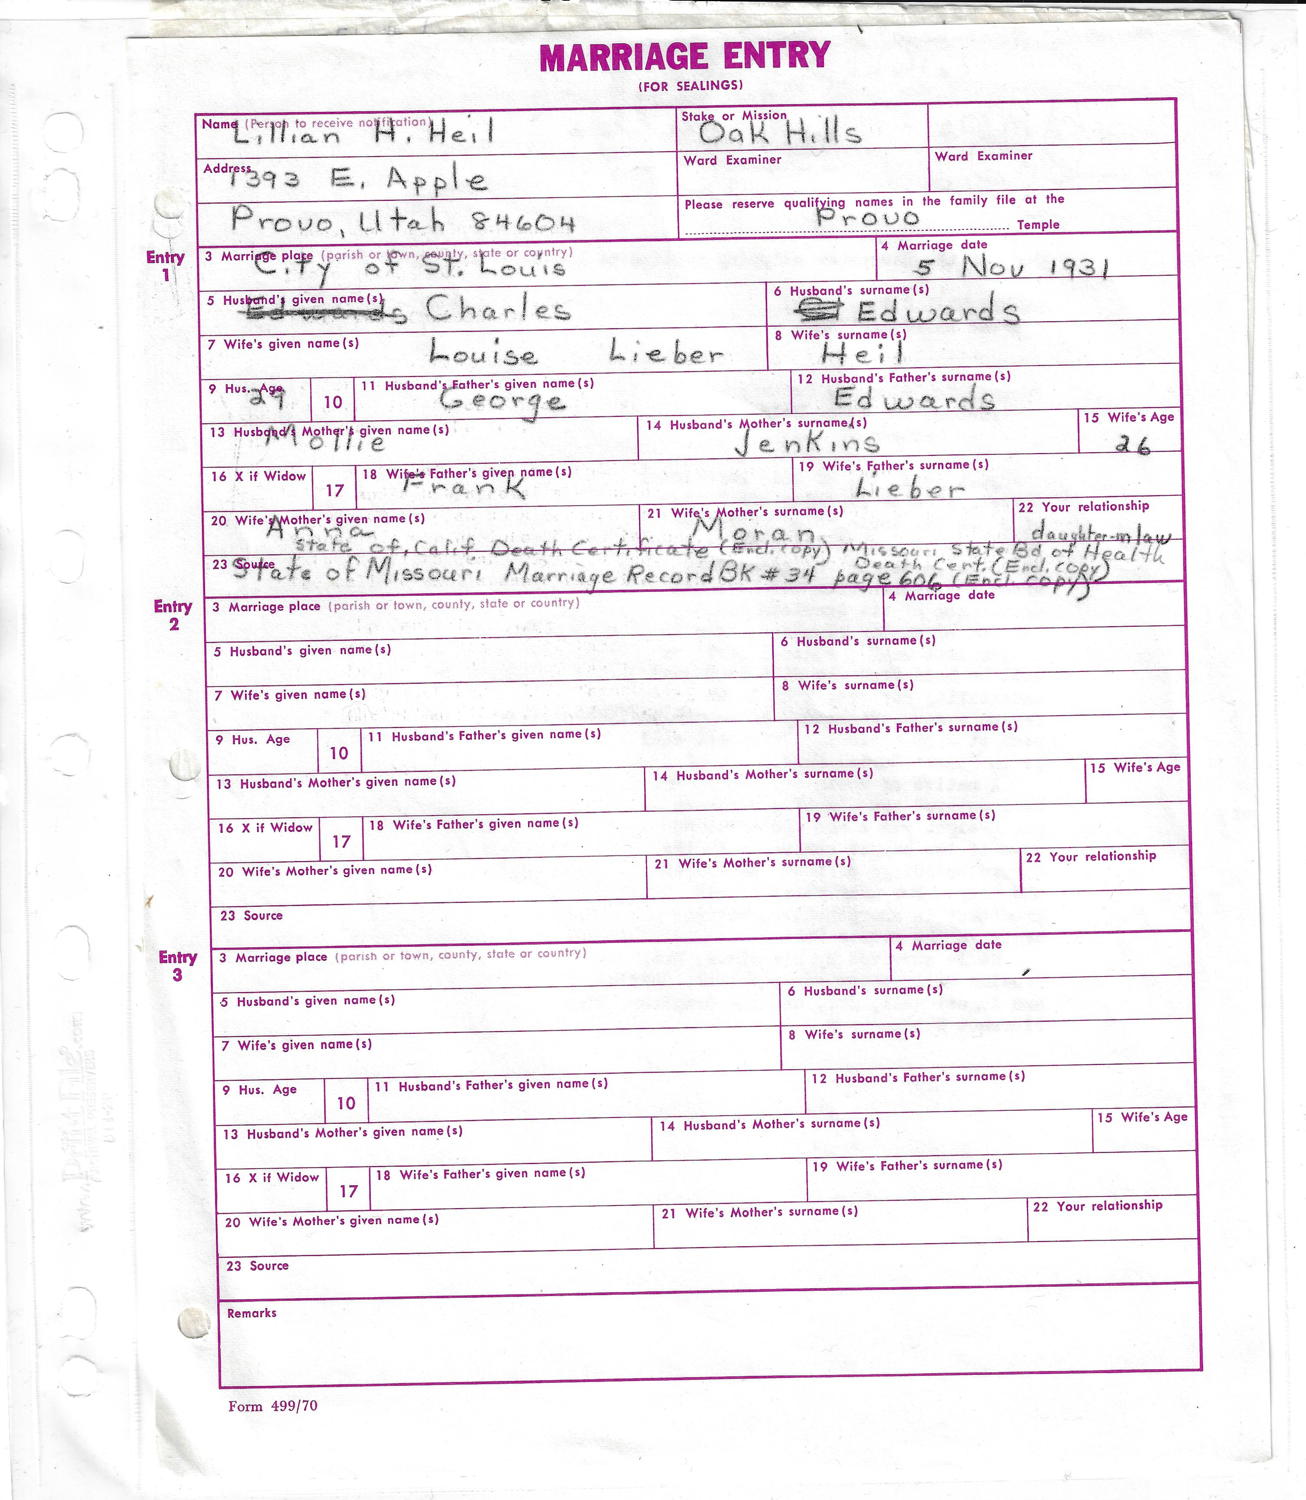 MARRIAGE ENTRY
(FOR SEALINGS)
Name (Person to receive notification)
Lillian H. Heil
Stake or Mission
Oak Hills
Address
1393 E. Apple
Ward Examiner
Ward Examiner
Provo, Utah 84604
Please reserve qualifying names in the family file at the
Provo
Temple
Entry
1
3 Marriage place (parish or town, county, state or country)
City of St. Louis
4 Marriage date
5 Nov 1931
5 Husband's given name(s)
Edwards Charles
6 Husband's surname(s)
Edwards
7 Wife's given name(s)
Louise Lieber
8 Wife's surname(s)
Heil
9 Hus. Age
29
10
11 Husband's Father's given name(s)
George
12 Husband's Father's surname(s)
Edwards
13 Husband's Mother's given name(s)
Mollie
14 Husband's Mother's surname(s)
Jenkins
15 Wife's Age
26
16 X if Widow
17
18 Wife's Father's given name(s)
Frank
19 Wife's Father's surname(s)
Lieber
20 Wife's Mother's given name(s)
Anna
21 Wife's Mother's surname(s)
Moran
22 Your relationship
daughter-in-law
State of Calif. Death Certificate (Encl. copy) Missouri State Bd of Health
Death Cert. (Encl. copy)
23 Source
State of Missouri Marriage Record BK # 34 page 606 (Encl. copy)
Entry
2
3 Marriage place (parish or town, county, state or country)
4 Marriage date
5 Husband's given name(s)
6 Husband's surname(s)
7 Wife's given name(s)
8 Wife's surname(s)
9 Hus. Age
10
11 Husband's Father's given name(s)
12 Husband's Father's surname(s)
13 Husband's Mother's given name(s)
14 Husband's Mother's surname(s)
15 Wife's Age
16 X if Widow
17
18 Wife's Father's given name(s)
19 Wife's Father's surname(s)
20 Wife's Mother's given name(s)
21 Wife's Mother's surname(s)
22 Your relationship
23 Source
Entry
3
3 Marriage place (parish or town, county, state or country)
4 Marriage date
5 Husband's given name(s)
6 Husband's surname(s)
7 Wife's given name(s)
8 Wife's surname(s)
9 Hus. Age
10
11 Husband's Father's given name(s)
12 Husband's Father's surname(s)
13 Husband's Mother's given name(s)
14 Husband's Mother's surname(s)
15 Wife's Age
16 X if Widow
17
18 Wife's Father's given name(s)
19 Wife's Father's surname(s)
20 Wife's Mother's given name(s)
21 Wife's Mother's surname(s)
22 Your relationship
23 Source
Remarks
Form 499/70